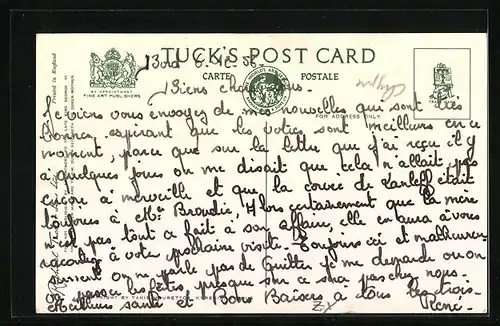 TUCK'S POST CARD
CARTE POSTALE
BY APPOINTMENT
FINE ART PUBLISHERS
FOR ADDRESS ONLY
Printed in England
Biens chers
Je viens vous envoyez de mes nouvelles qui sont très
bonnes, esperant que les votres sont meilleurs en ce
moment, parce que sur la lettre que j'ai reçu il y
a quelques jours on me disait que cela n'allait pas
encore à merveille et que la couvée de était
toujours à Mr. Alors certainement que la mère
n'est pas tout a fait à son affaire, elle en aura à vous
raconter à votre prochaine visite. Toujours ici et malheureu-
sement on ne parle pas de quitter je me demande ou on
va passer les fêtes presque sur ce sera pas chez nous.
Meilleurs santé et Bons Baisers à tous les trois.
René.